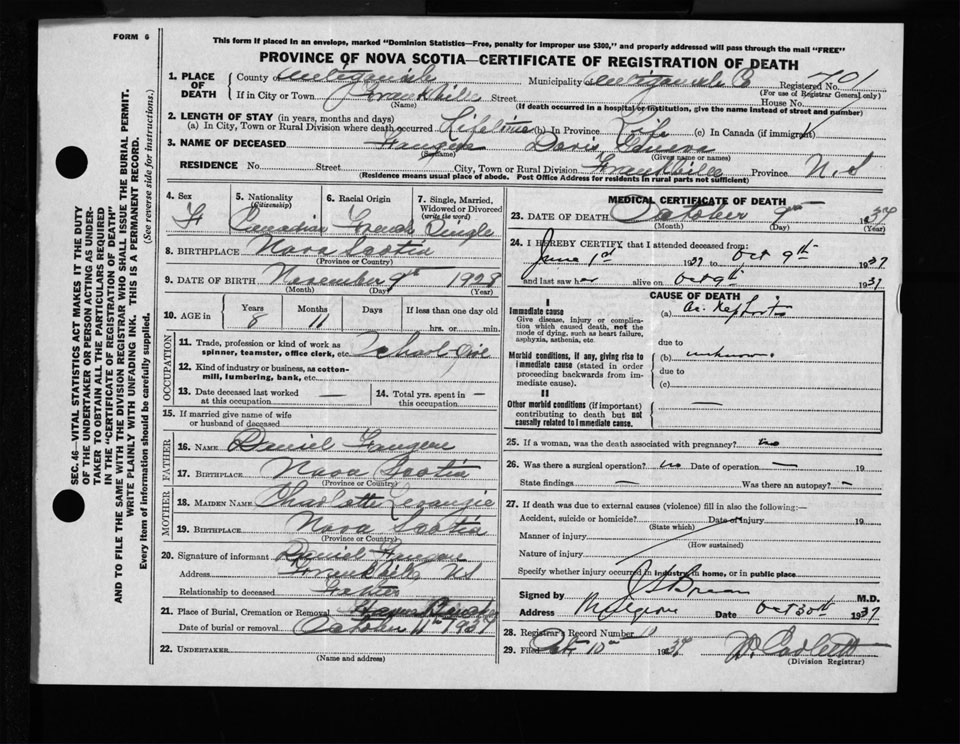 FORM 6
This form if placed in an envelope, marked "Dominion Statistics—Free, penalty for improper use $300," and properly addressed will pass through the mail "FREE"
PROVINCE OF NOVA SCOTIA—CERTIFICATE OF REGISTRATION OF DEATH
1. PLACE OF DEATH
County of Antigonish Municipality of Antigonish Co Registered No. 701
(For use of Registrar General only)
If in City or Town Frankville Street House No.
(Name) (If death occurred in a hospital or institution, give the name instead of street and number)
2. LENGTH OF STAY (in years, months and days)
(a) In City, Town or Rural Division where death occurred Lifetime (b) In Province Life (c) In Canada (if immigrant)
3. NAME OF DECEASED Doris
(Surname) (Given name or names)
RESIDENCE No. Street City, Town or Rural Division Frankville Province N.S
(Residence means usual place of abode. Post Office Address for residents in rural parts not sufficient)
4. Sex F
5. Nationality (Citizenship) Canadian
6. Racial Origin French
7. Single, Married, Widowed or Divorced (write the word) Single
8. BIRTHPLACE Nova Scotia
(Province or Country)
9. DATE OF BIRTH November 9th 1928
(Month) (Day) (Year)
10. AGE in Years 8 Months 11 Days If less than one day old
hrs. or min.
OCCUPATION
11. Trade, profession or kind of work as spinner, teamster, office clerk, etc. School Girl
12. Kind of industry or business, as cotton-mill, lumbering, bank, etc.
13. Date deceased last worked at this occupation —
14. Total yrs. spent in this occupation —
15. If married give name of wife or husband of deceased
FATHER
16. NAME Daniel
17. BIRTHPLACE Nova Scotia
(Province or Country)
MOTHER
18. MAIDEN NAME Charlotte
19. BIRTHPLACE Nova Scotia
(Province or Country)
20. Signature of informant Daniel
Address Frankville NS
Relationship to deceased Father
21. Place of Burial, Cremation or Removal
Date of burial or removal October 11th 1937
22. UNDERTAKER
(Name and address)
MEDICAL CERTIFICATE OF DEATH
23. DATE OF DEATH October 9th 1937
(Month) (Day) (Year)
24. I HEREBY CERTIFY that I attended deceased from:
June 1st 1937 to Oct 9th 1937
and last saw h alive on Oct 9th 1937
CAUSE OF DEATH
I
Immediate cause
Give disease, injury or complication which caused death, not the mode of dying, such as heart failure, asphyxia, asthenia, etc.
(a) Ac. Nephritis
due to
Morbid conditions, if any, giving rise to immediate cause (stated in order proceeding backwards from immediate cause).
(b) unknown.
due to
(c)
II
Other morbid conditions (if important) contributing to death but not causally related to immediate cause. —
25. If a woman, was the death associated with pregnancy? no
26. Was there a surgical operation? no Date of operation — 19
State findings — Was there an autopsy? —
27. If death was due to external causes (violence) fill in also the following:—
Accident, suicide or homicide? Date of injury 19
(State which)
Manner of injury
(How sustained)
Nature of injury
Specify whether injury occurred in industry, in home, or in public place
Signed by M.D.
Address Mulgrave Date Oct 30th 1937
28. Registrar's Record Number
29. Filed Oct 10th 1937
(Division Registrar)
SEC. 46—VITAL STATISTICS ACT MAKES IT THE DUTY
OF THE UNDERTAKER OR PERSON ACTING AS UNDER-
TAKER TO OBTAIN ALL THE PARTICULARS REQUIRED
IN THE "CERTIFICATE OF REGISTRATION OF DEATH"
AND TO FILE THE SAME WITH THE DIVISION REGISTRAR WHO SHALL ISSUE THE BURIAL PERMIT.
WRITE PLAINLY WITH UNFADING INK. THIS IS A PERMANENT RECORD.
Every item of information should be carefully supplied. (See reverse side for instructions.)